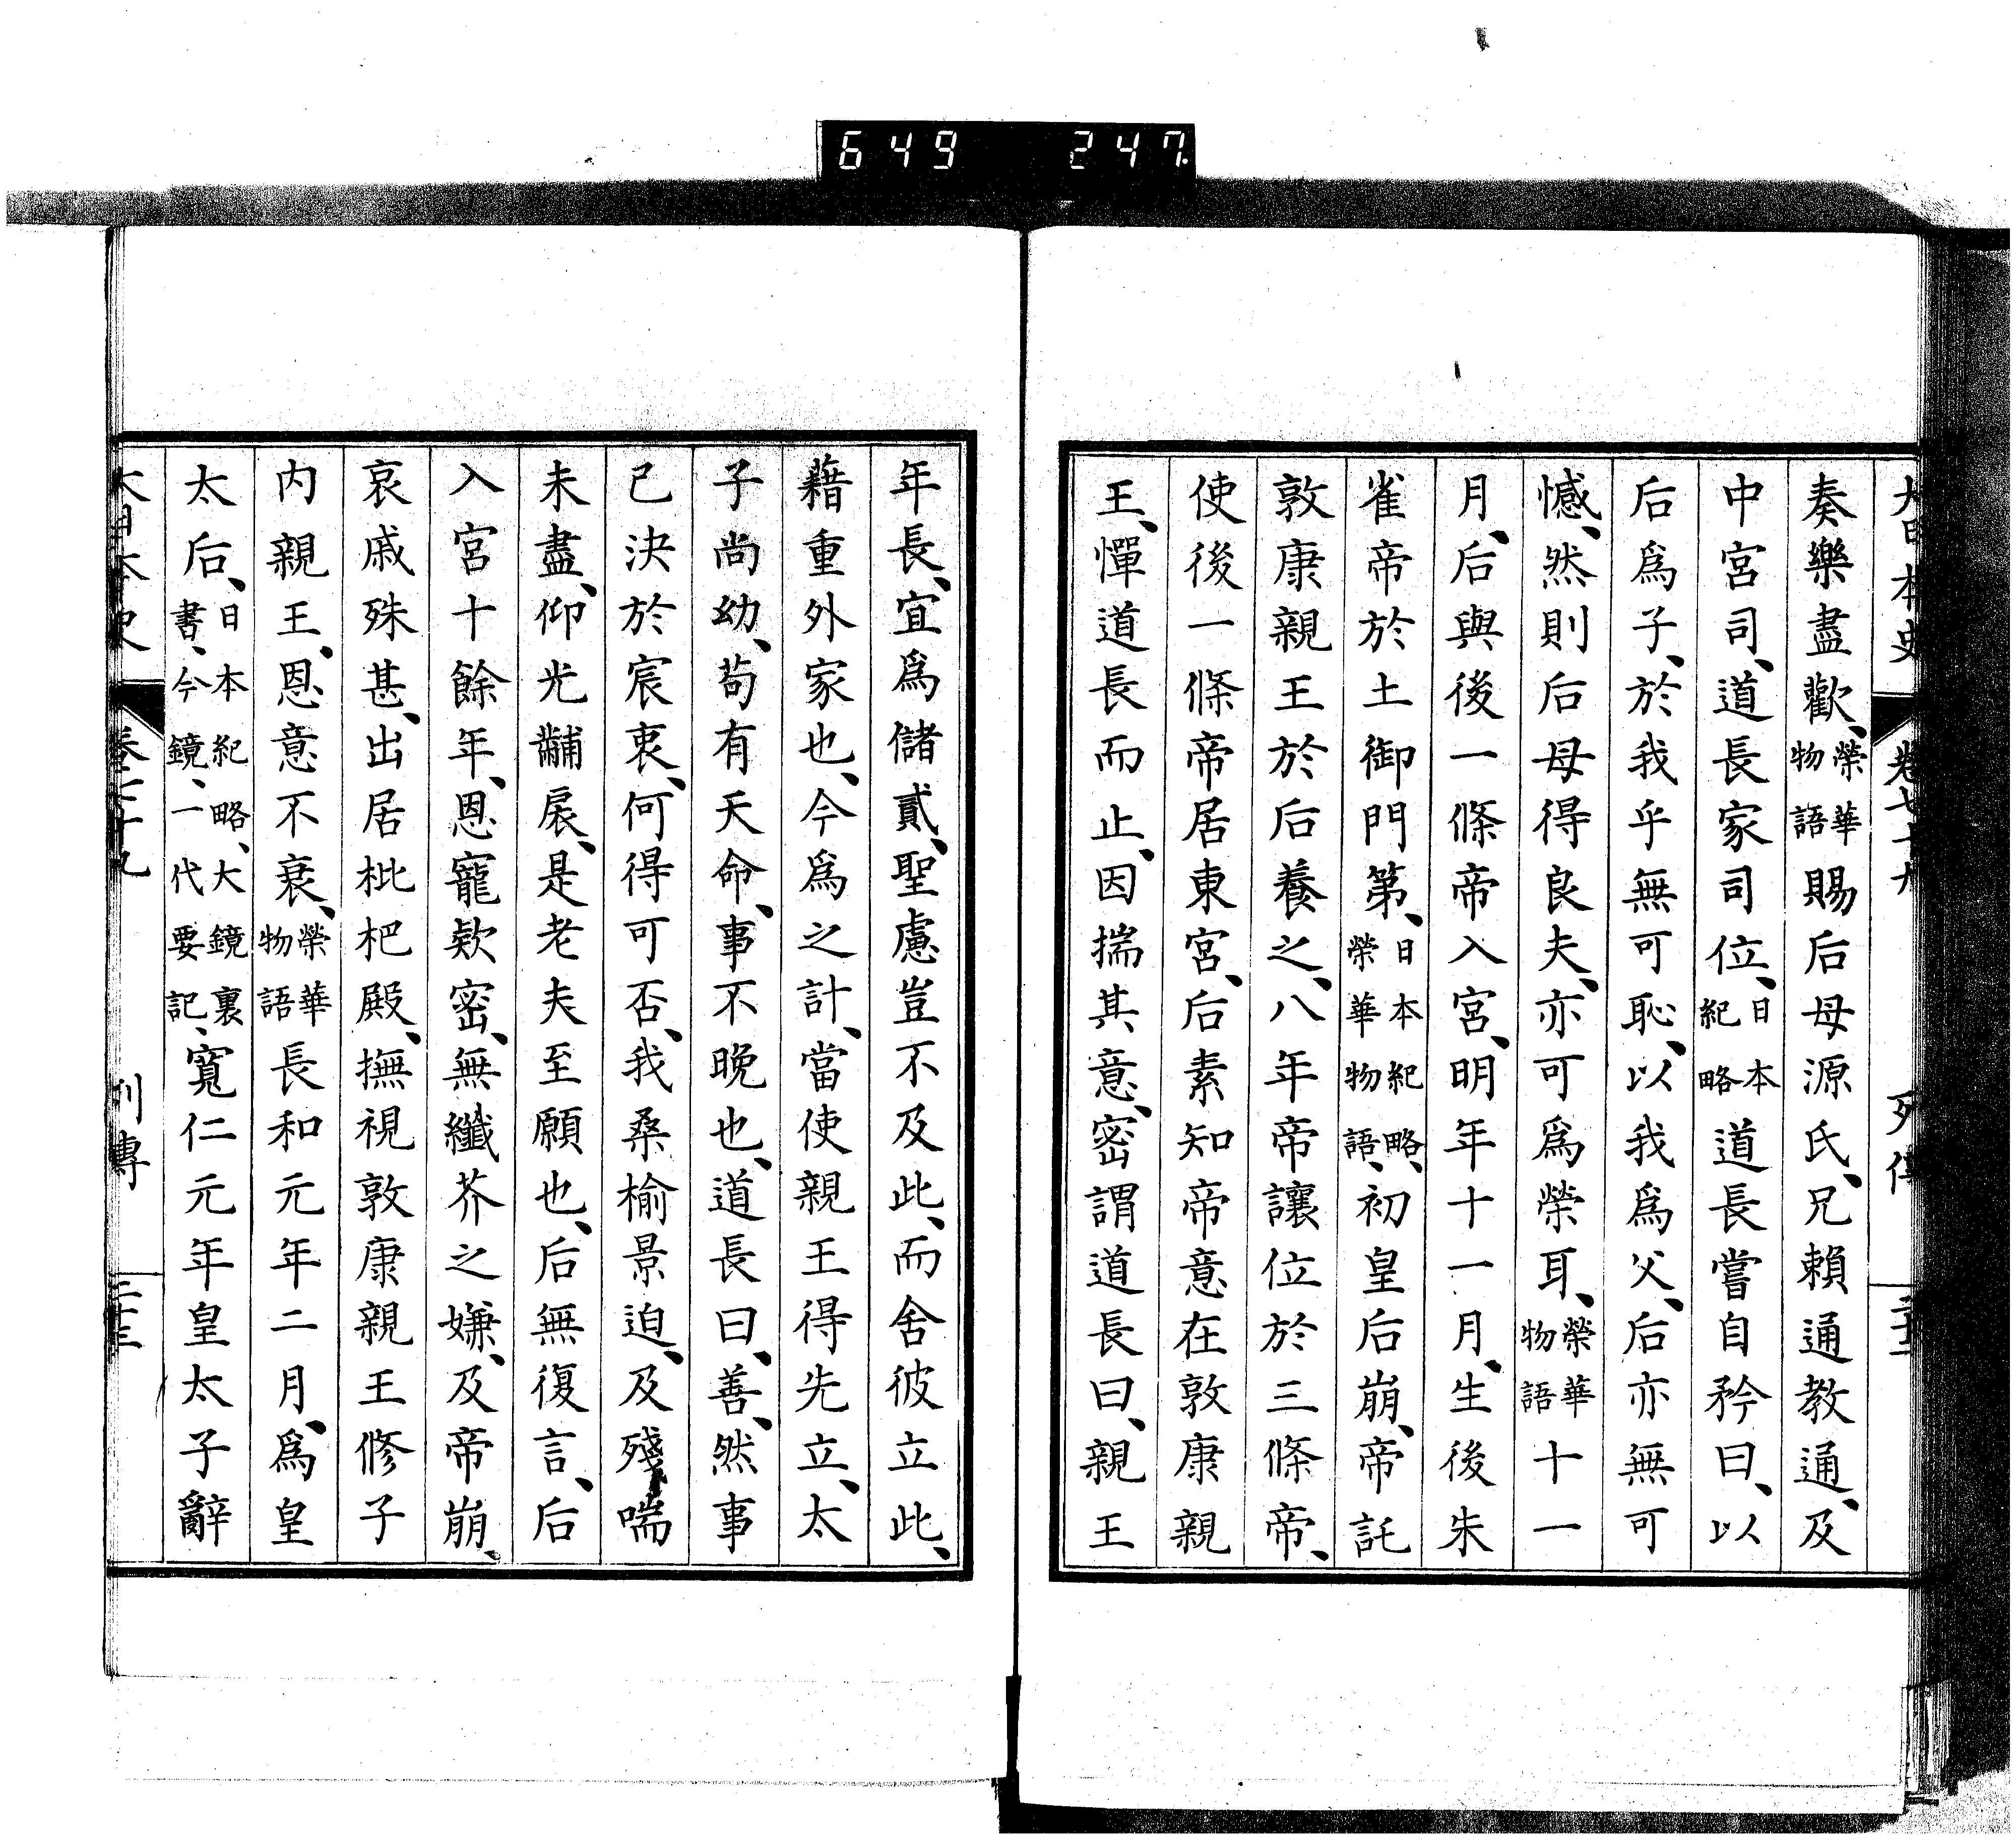 649 247
大日本史 卷七十九 列傳
奏樂盡歡、榮華物語賜后母源氏、兄賴通教通、及
中宮司、道長家司位、日本紀略道長嘗自矜曰、以
后爲子、於我乎無可恥、以我爲父、后亦無可
憾、然則后母得良夫、亦可爲榮耳、榮華物語十一
月、后與後一條帝入宮、明年十一月、生後朱
雀帝於土御門第、日本紀略、榮華物語、初皇后崩、帝託
敦康親王於后養之、八年帝讓位於三條帝、
使後一條帝居東宮、后素知帝意在敦康親
王、憚道長而止、因揣其意、密謂道長曰、親王
年長、宜爲儲貳、聖慮豈不及此、而舍彼立此、
藉重外家也、今爲之計、當使親王得先立、太
子尚幼、苟有天命、事不晚也、道長曰、善、然事
已決於宸衷、何得可否、我桑榆景迫、及殘喘
未盡、仰光黼扆、是老夫至願也、后無復言、后
入宮十餘年、恩寵欵密、無纖芥之嫌、及帝崩、
哀戚殊甚、出居枇杷殿、撫視敦康親王脩子
内親王、恩意不衰、榮華物語長和元年二月、爲皇
太后、日本紀略、大鏡裏書、今鏡、一代要記、寬仁元年皇太子辭
大日本史 卷七十九 列傳 二十三